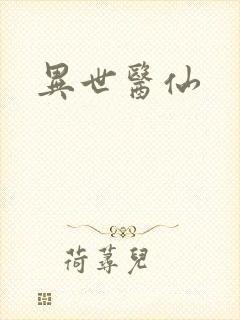 異世醫仙
荷蕁兒